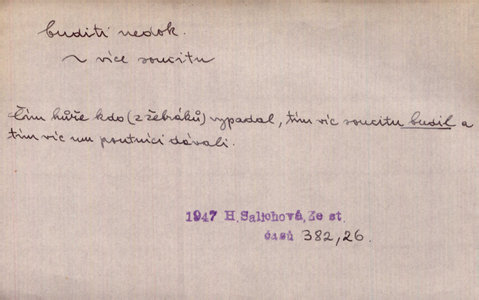 buditi nedok.
~ více soucitu
Čím hůře kdo (z žebráků) vypadal, tím víc soucitu budil a
tím víc mu poutníci dávali.
1947 H. Salichová, Ze st.
časů 382,26.